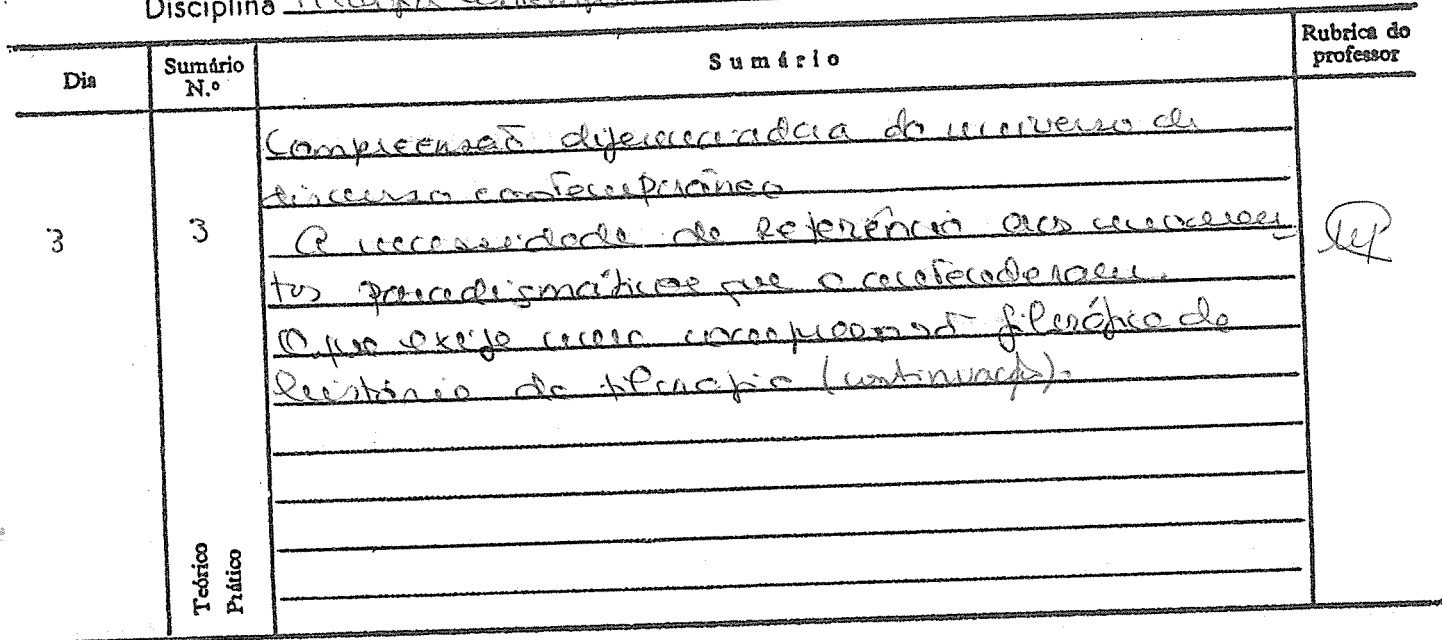 Disciplina Filosofia
Dia
Sumário N.º
Sumário
Rubrica do professor
3
3
Compreensão diferenciada do universo de
discurso contemporâneo
A necessidade de Referência aos momen
tos paradigmáticos que o antecederam.
O que exige uma compreensão filosófica da
história da filosofia (continuação).
Teórico
Prático